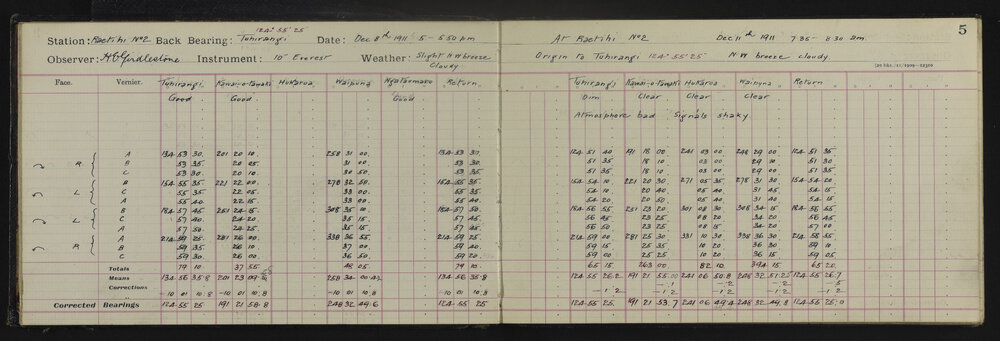 5
124° 55' 25
Station: Raetihi No2 Back Bearing: Tuhirangi Date: Dec 8th 1911 5 - 5.50 pm
At Raetihi No2 Dec 11th 1911 7.35 - 8.30 am
Observer: H E Girdlestone Instrument: 10" Everest Weather: Slight N W breeze
Cloudy
Origin to Tuhirangi 124° 55' 25" N W breeze cloudy
Face. Vernier. Tuhirangi Hukaroa Waipuna Return
Tuhirangi Hukaroa Waipuna Return
Good Good Good
Dim Clear Clear Clear
Atmosphere bad Signals shaky
A 134 53 30 201 20 10 258 31 00 134 53 30
124 51 40 191 18 00 241 03 00 248 29 00 124 51 35
R B 53 35 20 05 31 00 53 30
51 35 18 10 03 00 29 10 51 30
C 53 30 20 10 30 50 53 35
51 35 18 10 03 00 29 00 51 35
B 154 55 35 221 22 00 278 32 50 154 55 35
154 54 10 221 20 30 271 05 35 278 31 30 154 54 20
L C 55 35 22 05 33 00 55 35
54 10 20 40 05 40 31 45 54 15
A 55 40 22 15 33 00 55 40
54 20 20 50 05 40 31 40 54 15
B 184 57 45 241 24 15 308 35 10 184 57 50
184 56 55 251 23 20 301 08 30 308 34 15 184 56 55
L C 57 40 24 20 35 15 57 45
56 45 23 25 08 20 34 20 56 45
A 57 50 24 25 35 15 57 45
56 50 23 25 08 15 34 20 57 00
A 214 59 25 281 26 00 338 36 55 214 59 25
214 59 00 281 25 30 331 10 30 338 36 30 214 59 15
R B 59 35 26 10 37 00 59 40
59 15 25 35 10 20 36 30 59 10
C 59 30 26 00 36 50 59 40
59 00 25 25 10 20 36 15 59 05
Totals 79 10 37 55 48 05 79 10
65 15 263 00 82 10 394 15 65 20
Means 134 56 35.8 201 23 09.6 258 34 00.4 134 56 35.8
124 55 26.2 191 21 55.00 241 06 50.8 248 32 51.25 124 55 26.7
Corrections
-10 01 10.8 -10 01 10.8 -10 01 10.8
-1.2 -1.2 -1.2 -1.2
Corrected Bearings 124 55 25 191 21 58.8 248 32 49.6 124 55 25
124 55 25 191 21 53.7 241 06 49.4 248 32 49.8 124 55 25.0